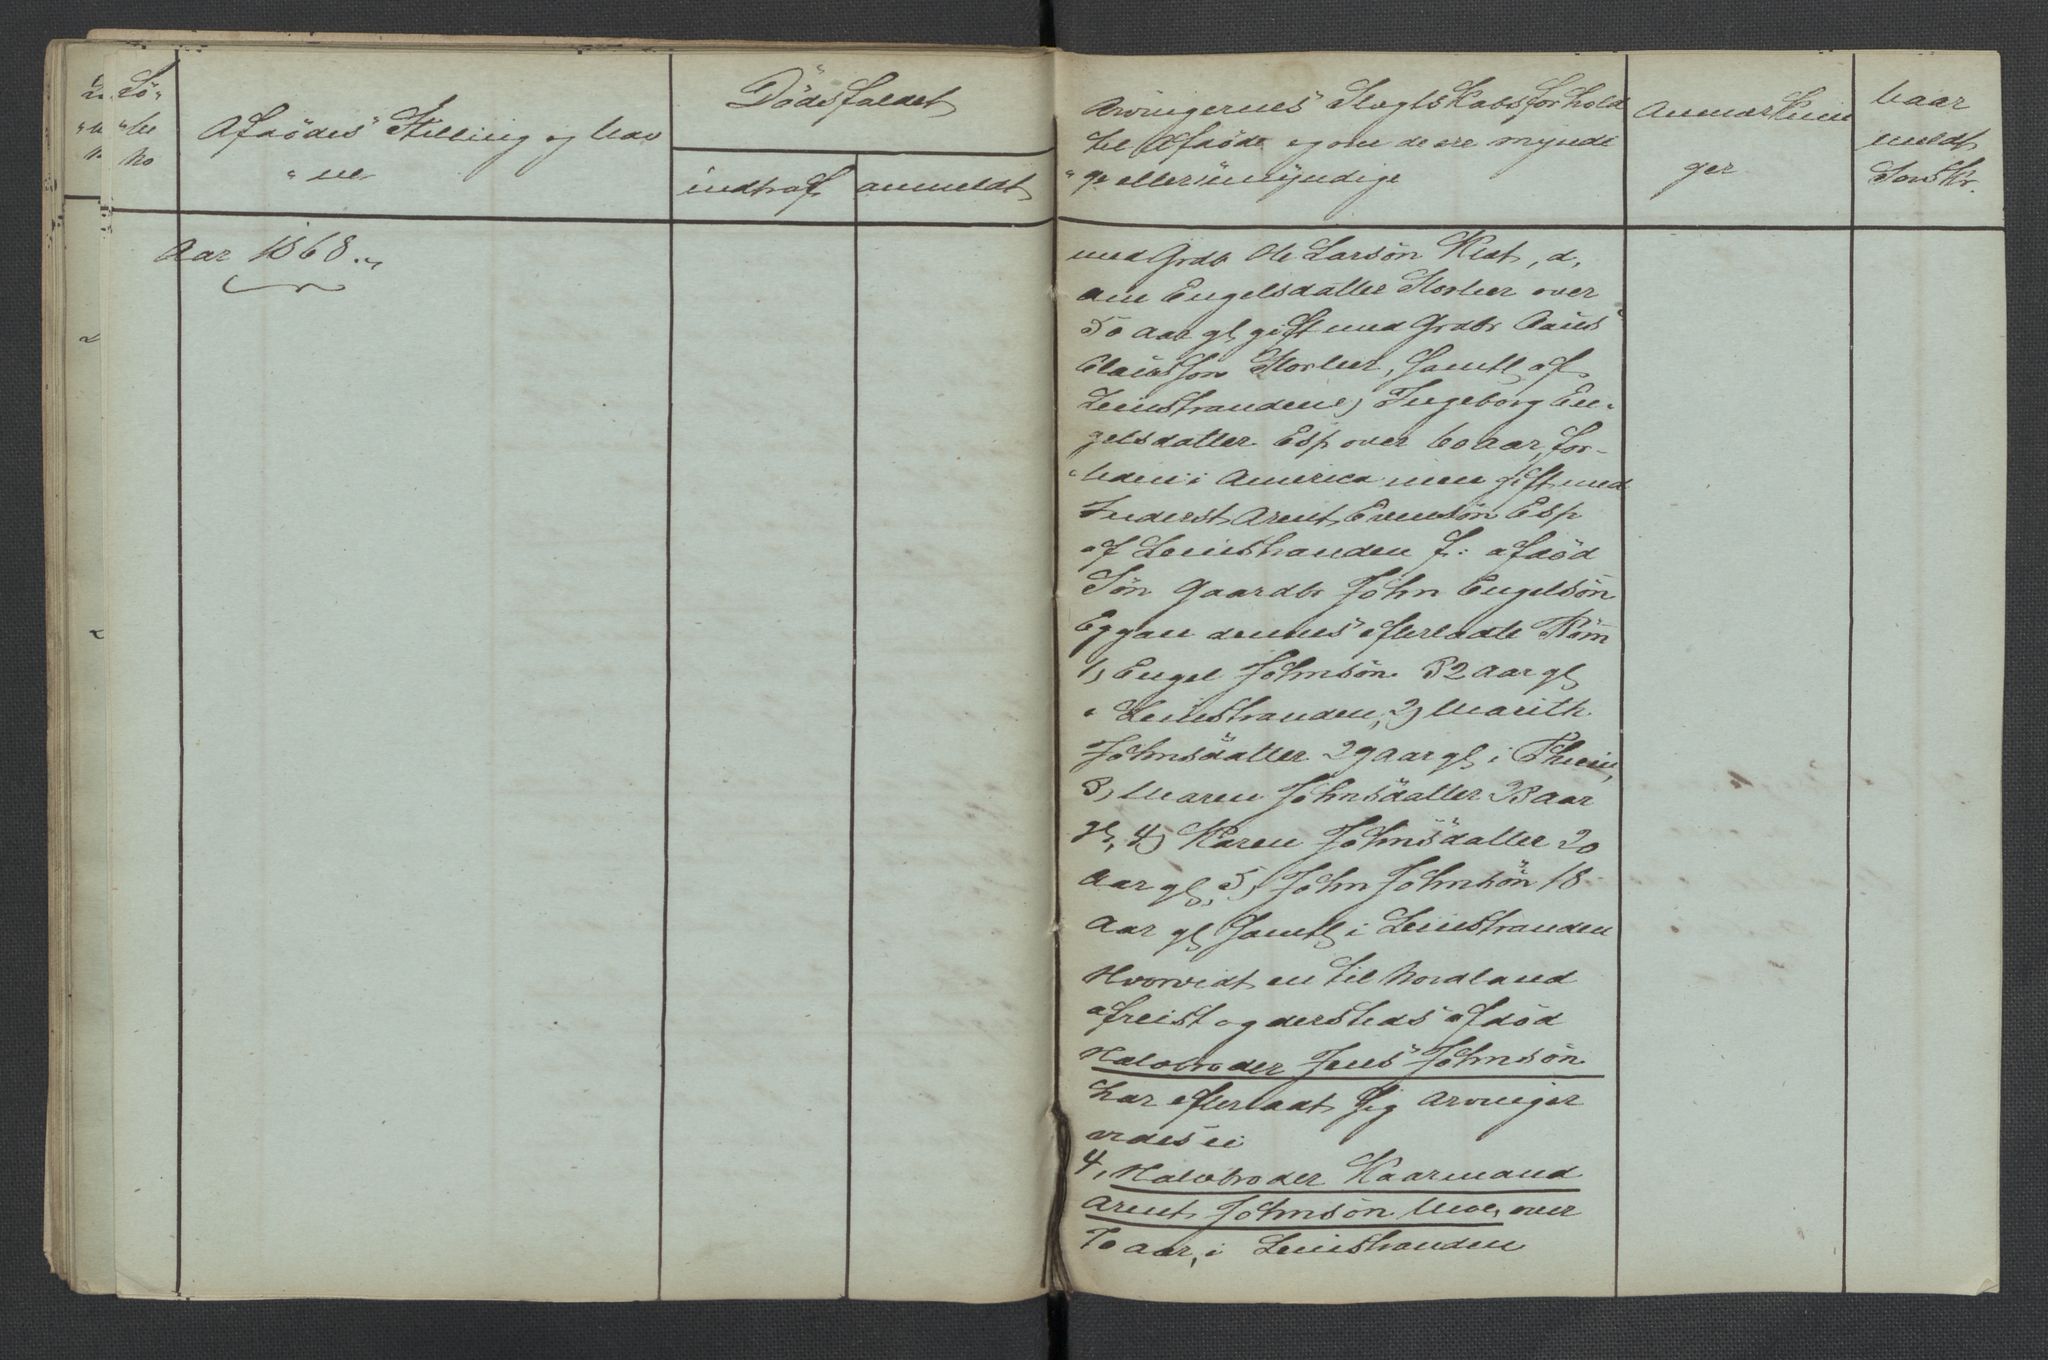 Lø-
"be
No
Afdödes Stilling og Nav
"ne
Dödsfaldet
indtraf
anmeldt
Aar 1868.
Arvingernes Slægtskabsforhold
til Afdöde og om de ere myndi
"ge eller umyndige
Anmærknin
ger
Naar
meldt
Sorskr.
med Grdb Ole Larsön Klet, d,
Ane Engelsdatter Storler over
50 Aar gl gift med Grdbr Claus
Clausson Storler, samtl af
Leinstranden, e, Ingeborg En-
gelsdatter Esp over 60 Aar, for-
"uden i America men gift med
Inderst Arent Evensön Esp
af Leinstranden f: afdöd
Sön Gaardb John Engelsön
Eggan dennes efterladte Börn
1, Engel Johnsön 32 Aar gl
i Leinstranden, 2, Marith
Johnsdatter 29 Aar gl i Thiem,
3, Maren Johnsdatter 23 Aar
gl, 4, Karen Johnsdatter 20
Aar gl, 5, John Johnsön 18
Aar gl samtl i Leinstranden
Hvorvidt en til Nordland
afreist og dersteds afdöd
Halvbroder Jens Johnsön
har efterladt sig Arvinger
vides ei
4, Halvbroder Kaarmand
Arent Johnsön Moe, over
70 Aar, i Leinstranden